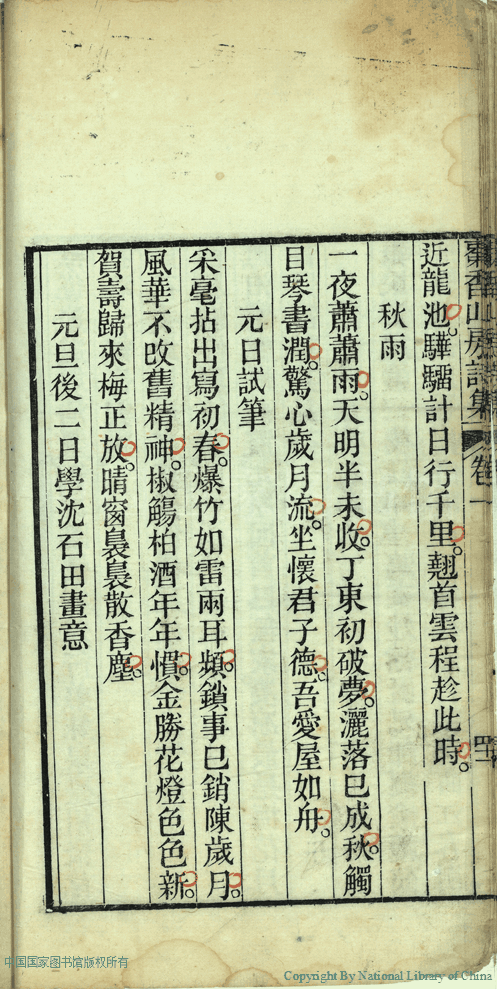 香山房詩集 卷一
近龍池。驊騮計日行千里。翹首雲程趁此時。
秋雨
一夜蕭蕭雨。天明半未收。丁東初破夢。灑落已成秋。觸
目琴書潤。驚心歲月流。坐懷君子德。吾愛屋如舟。
元日試筆
采毫拈出寫初春。爆竹如雷兩耳頻。鎖事已銷陳歲月。
風華不改舊精神。椒觴柏酒年年慣。金勝花燈色色新。
賀壽歸來梅正放。晴窗裊裊散香塵。
元旦後二日學沈石田畫意
中国国家图书馆版权所有
Copyright By National Library of China